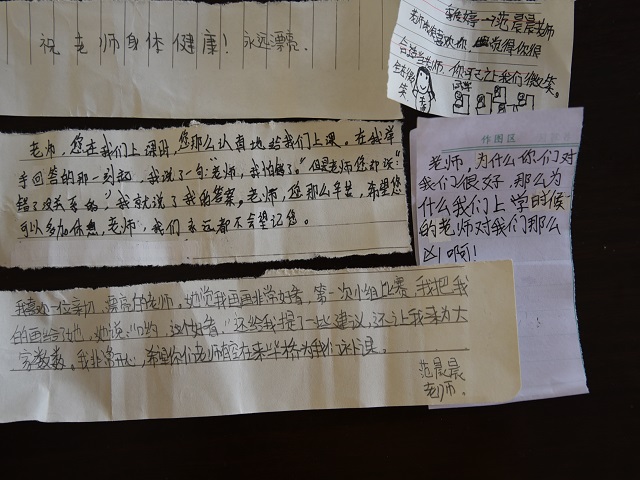 祝老师身体健康！永远漂亮.
范晨晨老师
老师我喜欢你 我觉得你很
合适当老师，你可让我们微笑。
作图区
老师，为什么你们对
我们很好，那么为
什么我们上学时候
的老师对我们那么
凶啊！
老师，您在我们上课时，您那么认真地给我们上课。在我举
手回答的那一刻起，我说了一句:“老师，我怕错了。”但是老师您却说:
错了没关系的，”我就说了我的答案。老师，您那么辛苦，希望您
可以多加休息，老师，我们永远都不会忘记您。
我喜欢一位亲切、漂亮的老师，她说我画画非常好看，第一次小组比赛，我把我
的画给了她，她说:“哟，这个好看”还给我提了一些建议，还让我来为大
家数数。我非常开心，希望你们老师能在来华桥为我们补课。
范晨晨
老师.